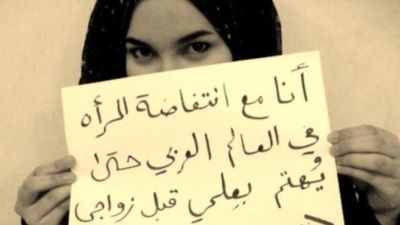 أنا مع انتفاضة المرأه
في العالم العربي حتى
يُهتم بعِلمي قبل زواجي